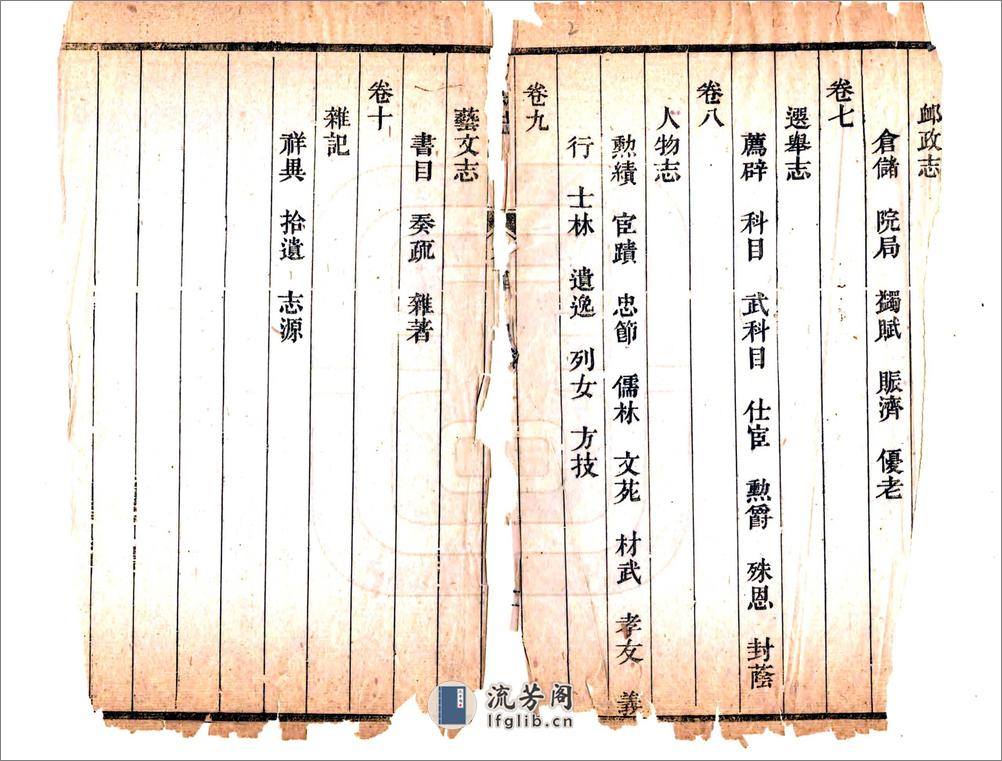 卹政志
倉儲 院局 蠲賦 賑濟 優老
卷七
選舉志
薦辟 科目 武科目 仕宦 勲爵 殊恩 封蔭
卷八
人物志
勲績 宦蹟 忠節 儒林 文苑 材武 孝友 義
行 士林 遺逸 列女 方技
卷九
藝文志
書目 奏疏 雜著
卷十
雜記
祥異 拾遺 志源
流芳阁
lfglib.cn